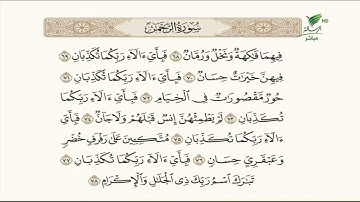 سُورَةُ الرَّحْمٰن
HD
مباشر
فِيهِمَا فَاكِهَةٌ وَنَخْلٌ وَرُمَّانٌ ٦٨ فَبِأَيِّ ءَالَآءِ رَبِّكُمَا تُكَذِّبَانِ ٦٩
فِيهِنَّ خَيْرَاتٌ حِسَانٌ ٧٠ فَبِأَيِّ ءَالَآءِ رَبِّكُمَا تُكَذِّبَانِ ٧١
حُورٌ مَقْصُورَاتٌ فِي الْخِيَامِ ٧٢ فَبِأَيِّ ءَالَآءِ رَبِّكُمَا
تُكَذِّبَانِ ٧٣ لَمْ يَطْمِثْهُنَّ إِنسٌ قَبْلَهُمْ وَلَا جَانٌّ ٧٤ فَبِأَيِّ
ءَالَآءِ رَبِّكُمَا تُكَذِّبَانِ ٧٥ مُتَّكِـِٔينَ عَلَىٰ رَفْرَفٍ خُضْرٍ
وَعَبْقَرِيٍّ حِسَانٍ ٧٦ فَبِأَيِّ ءَالَآءِ رَبِّكُمَا تُكَذِّبَانِ ٧٧
تَبَارَكَ اسْمُ رَبِّكَ ذِي الْجَلَالِ وَالْإِكْرَامِ ٧٨